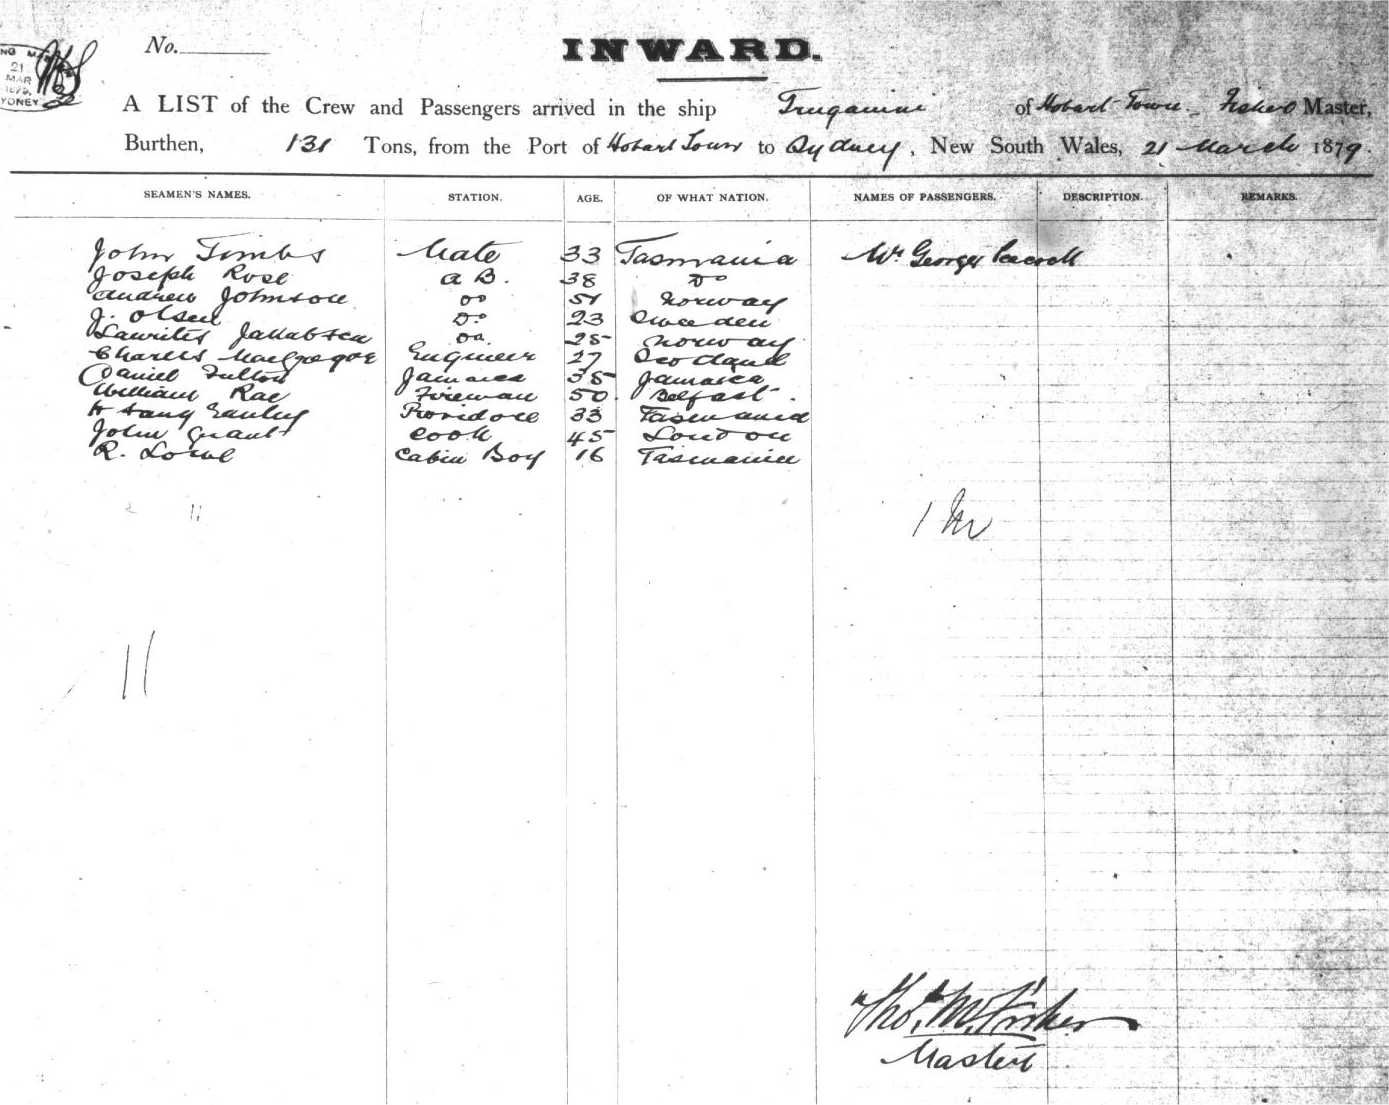 No.
INWARD.
21
MAR
SYDNEY
A LIST of the Crew and Passengers arrived in the ship Truganini of Hobart Town Fisher Master,
Burthen, 131 Tons, from the Port of Hobart Town to Sydney, New South Wales, 21 March 1879.
SEAMEN'S NAMES. STATION. AGE. OF WHAT NATION. NAMES OF PASSENGERS. DESCRIPTION. REMARKS.
John Timbs Mate 33 Tasmania Mr. George Peacock
Joseph Rose A B. 38 Do
Andrew Johnson Do 51 Norway
J. Olsen Do 23 Sweden
Lawrites Jakabsen Do 25 Norway
Charles MacGregor Engineer 27 Scotland
Daniel Fulton Jamaica 35 Jamaica
William Rae Fireman 50 Belfast.
Providore 33 Tasmania
John Grant Cook 45 London
R. Lowe Cabin Boy 16 Tasmania
11
1 Mr
11
Thos. M. Fisher
Master